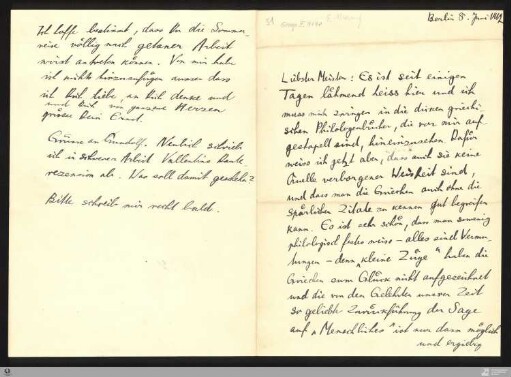 Berlin 8. Juni
Liebster Meister: Es ist seit einigen
Tagen lähmend heiss hier und ich
muss mich zwingen in die dicken griechi-
schen Philologenbücher, die vor mir auf-
gestapelt sind, hineinzusehen. Dafür
weiss ich jetzt aber, dass auch sie keine
Quelle verborgener Weisheit sind,
und dass man die Griechen auch ohne die
spärlichen Zitate zu kennen gut begreifen
kann. Es ist sehr schön, dass man so wenig
philologisch festes weiss – alles sind Vermu-
tungen – denn „kleine Züge" haben die
Griechen zum Glück nicht aufgezeichnet
und die von den Gelehrten unserer Zeit
so geliebte Zurückführung der Sage
auf „Menschliches" ist nur dann möglich
und ergiebig
Ich hoffe bestimmt, dass Du die Sommer-
reise völlig nach getaner Arbeit
wirst antreten können. Von mir habe
ich nichts hinzuzufügen ausser dass
ich Dich liebe, an Dich denke und
und Dich von ganzem Herzen
grüsse Dein Ernst.
Grüsse an Gundolf. Neulich schrieb
ich in schwerer Arbeit Vallentins
rezension ab. Was soll damit geschehn?
Bitte schreib mir recht bald.